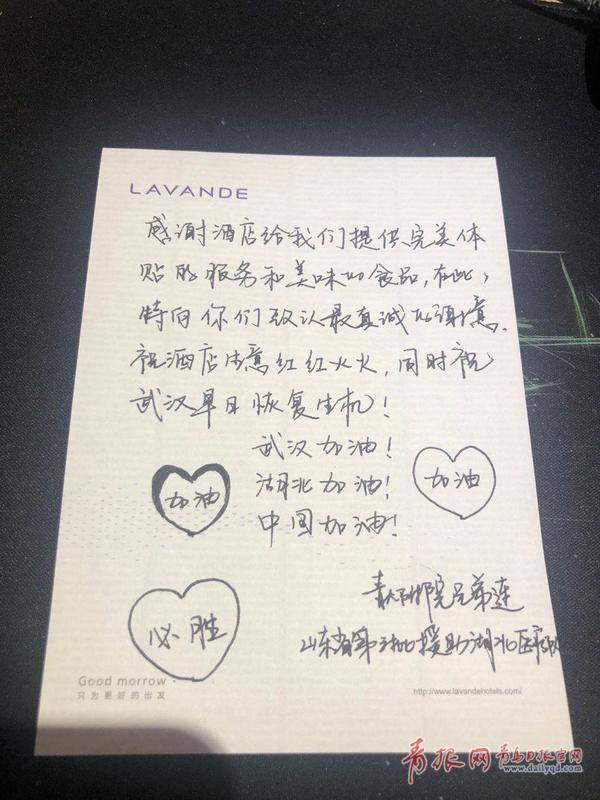 LAVANDE
感谢酒店给我们提供完美体
贴的服务和美味的食品,在此,
特向你们致以最真诚的谢意.
祝酒店生意红红火火,同时祝
武汉早日恢复生机!
武汉加油!
湖北加油!
中国加油!
加油
加油
必胜
青大附院兄弟连
山东省第三批援助湖北医疗队
Good morrow ·
只为更好的出发
http://www.lavandehotels.com/
青报网 青岛日报官网
www.dailyqd.com